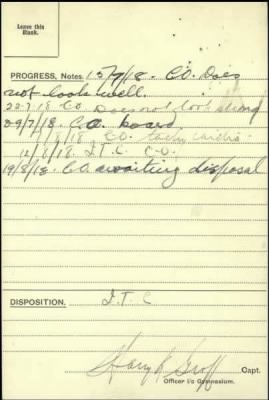 Leave this
Blank.
PROGRESS, Notes. 15/7/18. C.O. Does
not look well.
22.7.18 C.O. Does not look strong
29/7/18. C.O. board
/8/18. C.O. tachycardia.
12/8/18. I.T.C. C.O.
19/8/18. C.O. awaiting disposal
DISPOSITION. I.T.C
Capt.
Officer i/c Gymnasium.